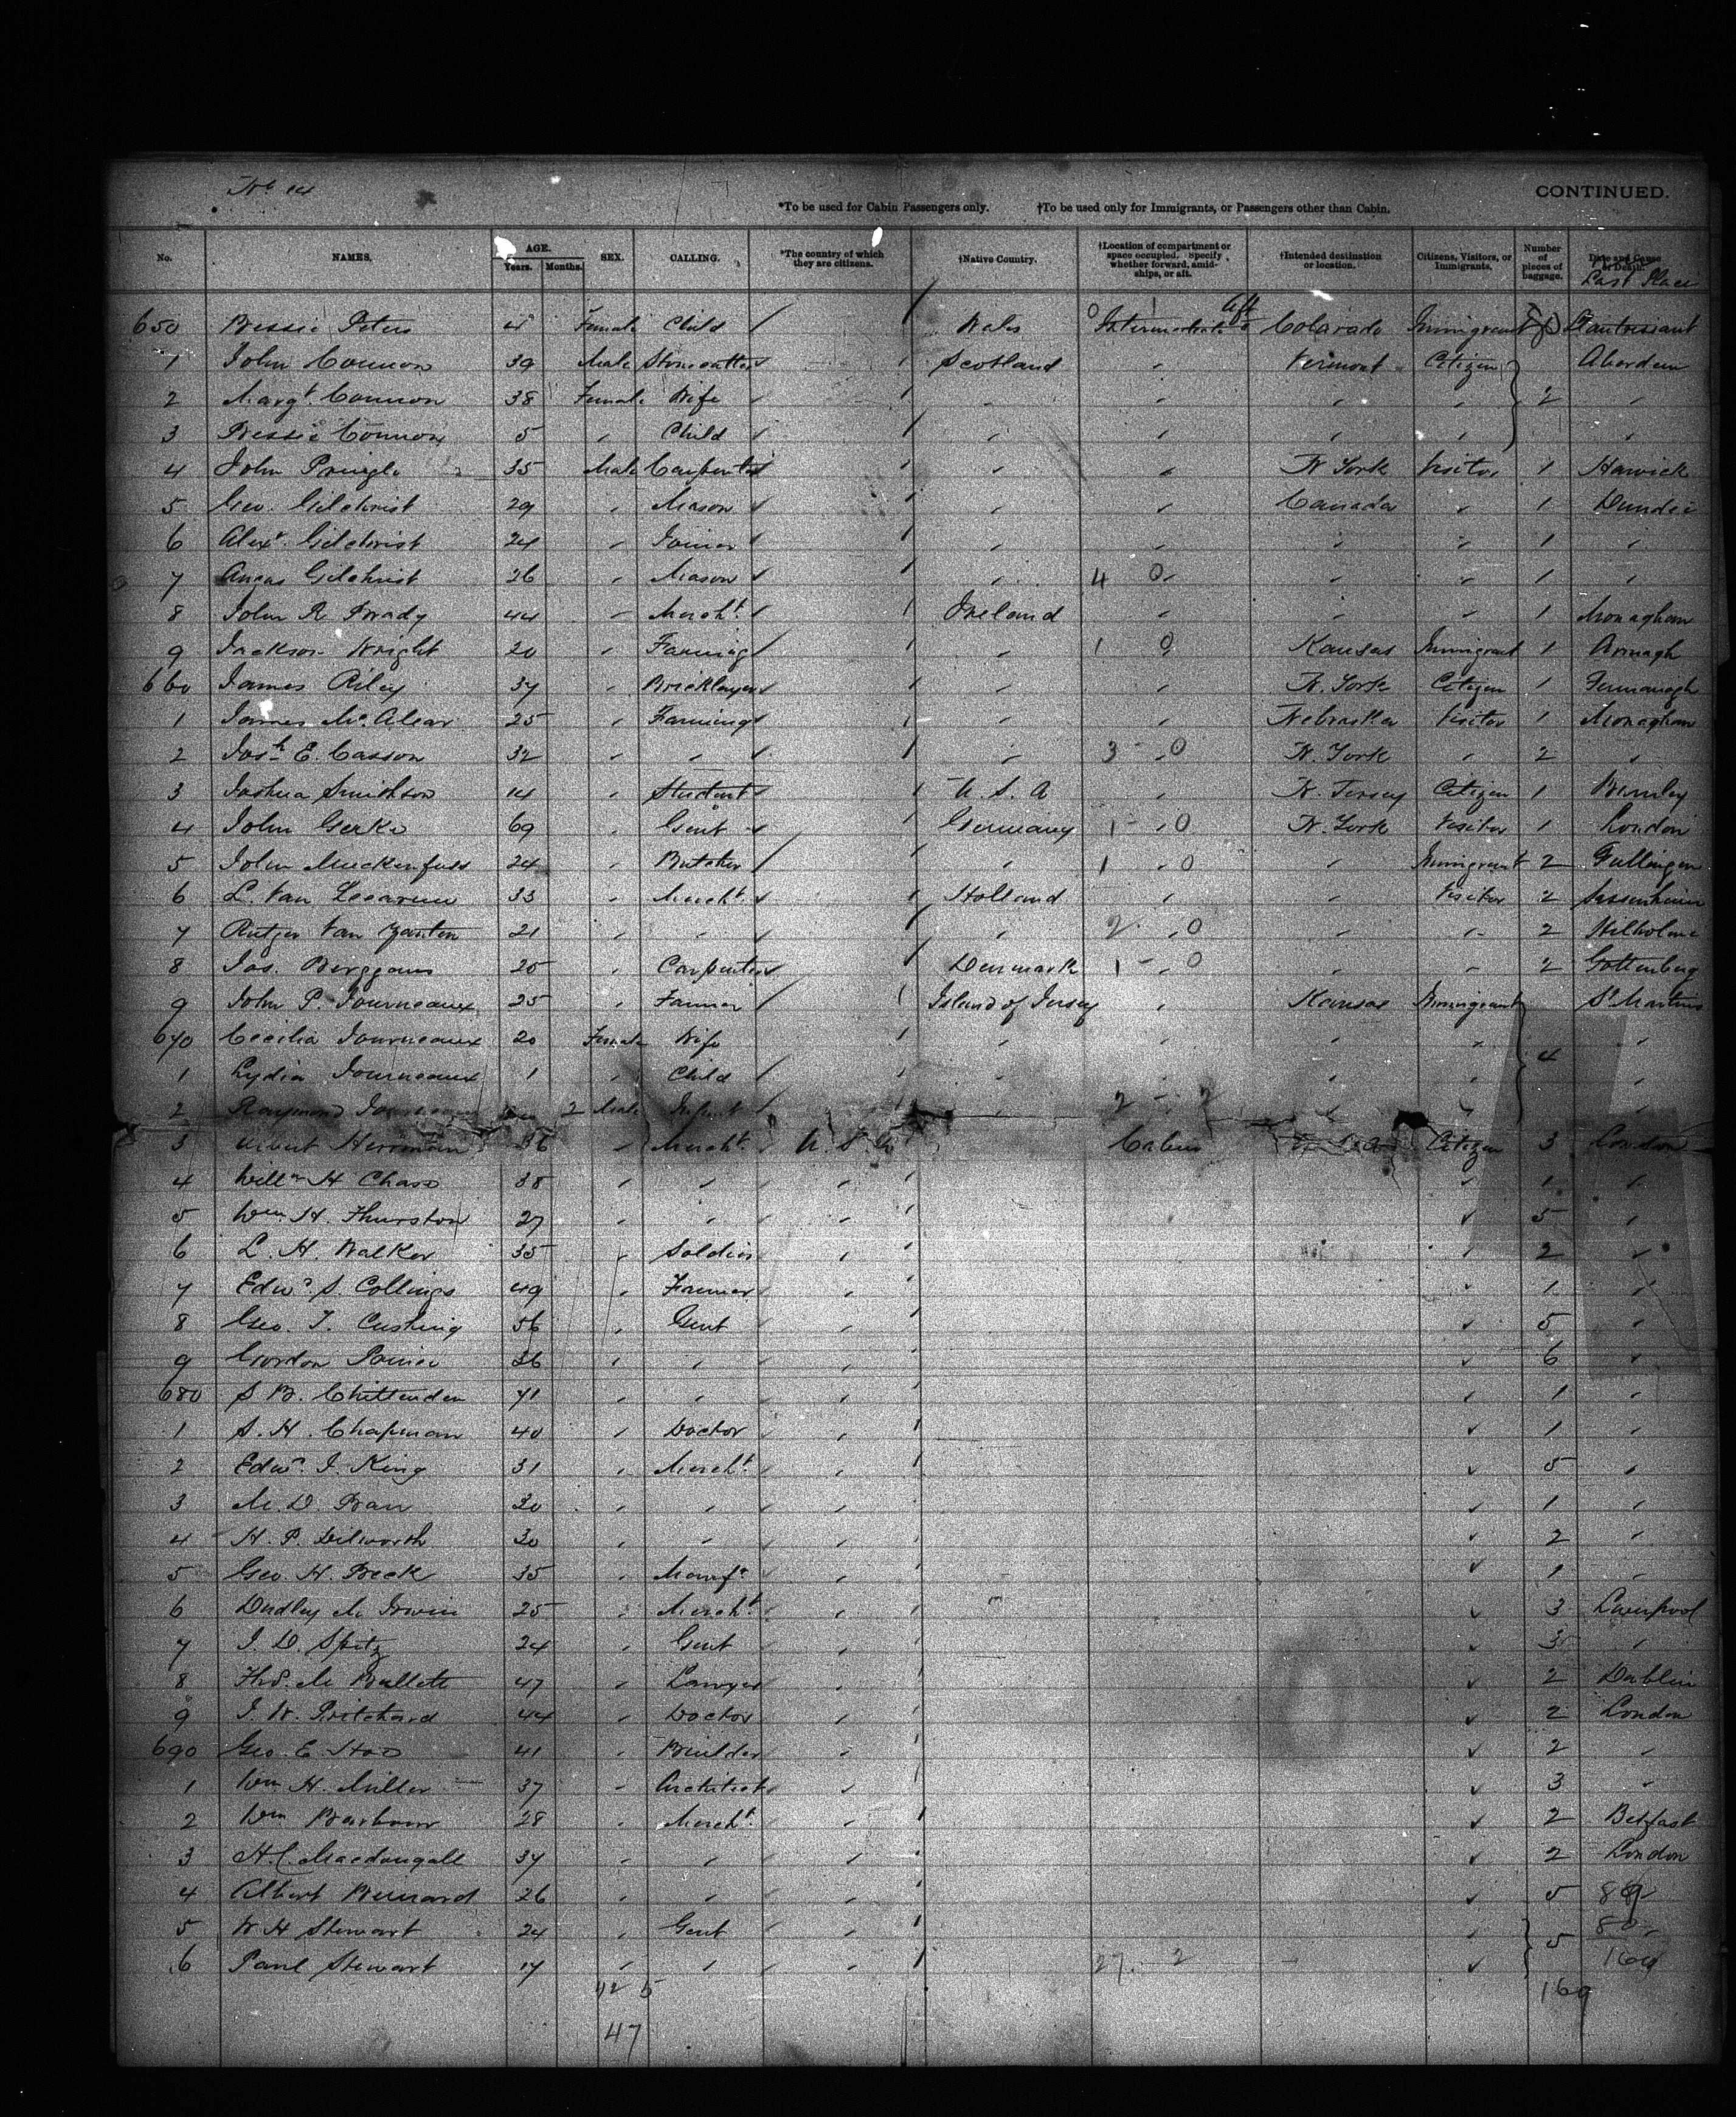 No 14
CONTINUED.
*To be used for Cabin Passengers only. †To be used only for Immigrants, or Passengers other than Cabin.
No. NAMES. AGE. Years. Months. SEX. CALLING. *The country of which they are citizens. †Native Country. †Location of compartment or space occupied. Specify whether forward, amidships, or aft. †Intended destination or location. Citizens, Visitors, or Immigrants. Number of pieces of baggage. Date and Cause of Death. Last Place
650 Bessie Peters 4 Female Child Wales Intermediate Aft Colorado Immigrant
1 John Connon 39 Male Stonecutter Scotland " Vermont Citizen Aberdeen
2 Margt. Connon 38 Female Wife " " " " 2 "
3 Bessie Connon 5 " Child " " " " "
4 John Pringle 35 Male Carpenter " " N York Visitor 1 Hawick
5 Geo. Gilchrist 29 " Mason " " Canada " 1 Dundee
6 Alexr. Gilchrist 24 " Joiner " " " " 1 "
7 Angus Gilchrist 26 " Mason " 4 0 " " " 1 "
8 John R Brady 44 " Mercht. Ireland " " " 1 Monaghan
9 Jackson Wright 20 " Farming " 1 0 Kansas Immigrant 1 Armagh
660 James Riley 37 " Bricklayer " " N. York Citizen 1 Fermanagh
1 James McAlear 25 " Farming " " Nebraska Visitor 1 Monaghan
2 Josh E. Casson 32 " " " 3 " 0 N. York " 2 "
3 Joshua Smithson 14 " Student U. S. A " N. Jersey Citizen 1
4 John Gerke 69 " Gent Germany 1 " 0 N. York Visitor 1 London
5 John Muckenfuss 24 " Butcher " 1 " 0 " Immigrant 2
6 L. Van 33 " Mercht. Holland " " Visitor 2
7 Rutger Van Zanten 21 " " " 2 " 0 " " 2
8 Jas. 25 " Carpenter Denmark 1 " 0 " " 2 Gottenberg
9 John P. Journeaux 25 " Farmer Island of Jersey " Kansas Immigrant St Martins
670 Cecilia Journeaux 20 Female Wife " " " 4 "
1 Lydia Journeaux 1 " Child " " " "
2 Raymond 2 Male Infant " 2 - 2 " " "
3 Herrman 36 " Mercht. U. S. A Cabin Citizen 3 London
4 Willm H Chase 38 " " " " 1 "
5 Wm. H. Thurston 27 " " " " 5 "
6 L. H. Walker 35 " Soldier " " 2 "
7 Edwd. S. Collings 49 " Farmer " " 1 "
8 Geo. T. Cushing 56 " Gent " " 5 "
9 Gordon 36 " " " " 6 "
680 S B. Chittenden 71 " " " " 1 "
1 S. H. Chapman 40 " Doctor " " 1 "
2 Edwd. J. King 31 " Mercht. " " 5 "
3 M. D. 30 " " " " 1 "
4 H. P. Dilworth 30 " " " " 2 "
5 Geo. H. Beek 35 " Manufr " " 1 "
6 Dudley M Irwin 25 " Mercht. " " 3 Liverpool
7 J. D. Spitz 24 " Gent " " 3 "
8 Thos. M Hallett 47 " Lawyer " " 2 Dublin
9 J. W. Pritchard 44 " Doctor " " 2 London
690 Geo. E 41 " Builder " " 2 "
1 Wm H. Miller 37 " Architect " " 3 "
2 Wm Barbour 28 " Mercht. " " 2 Belfast
3 H. C Macdougall 37 " " " " 2 London
4 Albert Bernard 26 " " " " 5 89
5 W H Stewart 24 " Gent " " 80
6 Paul Stewart 17 " " " 27. 2 " 5 169
42 5 169
47